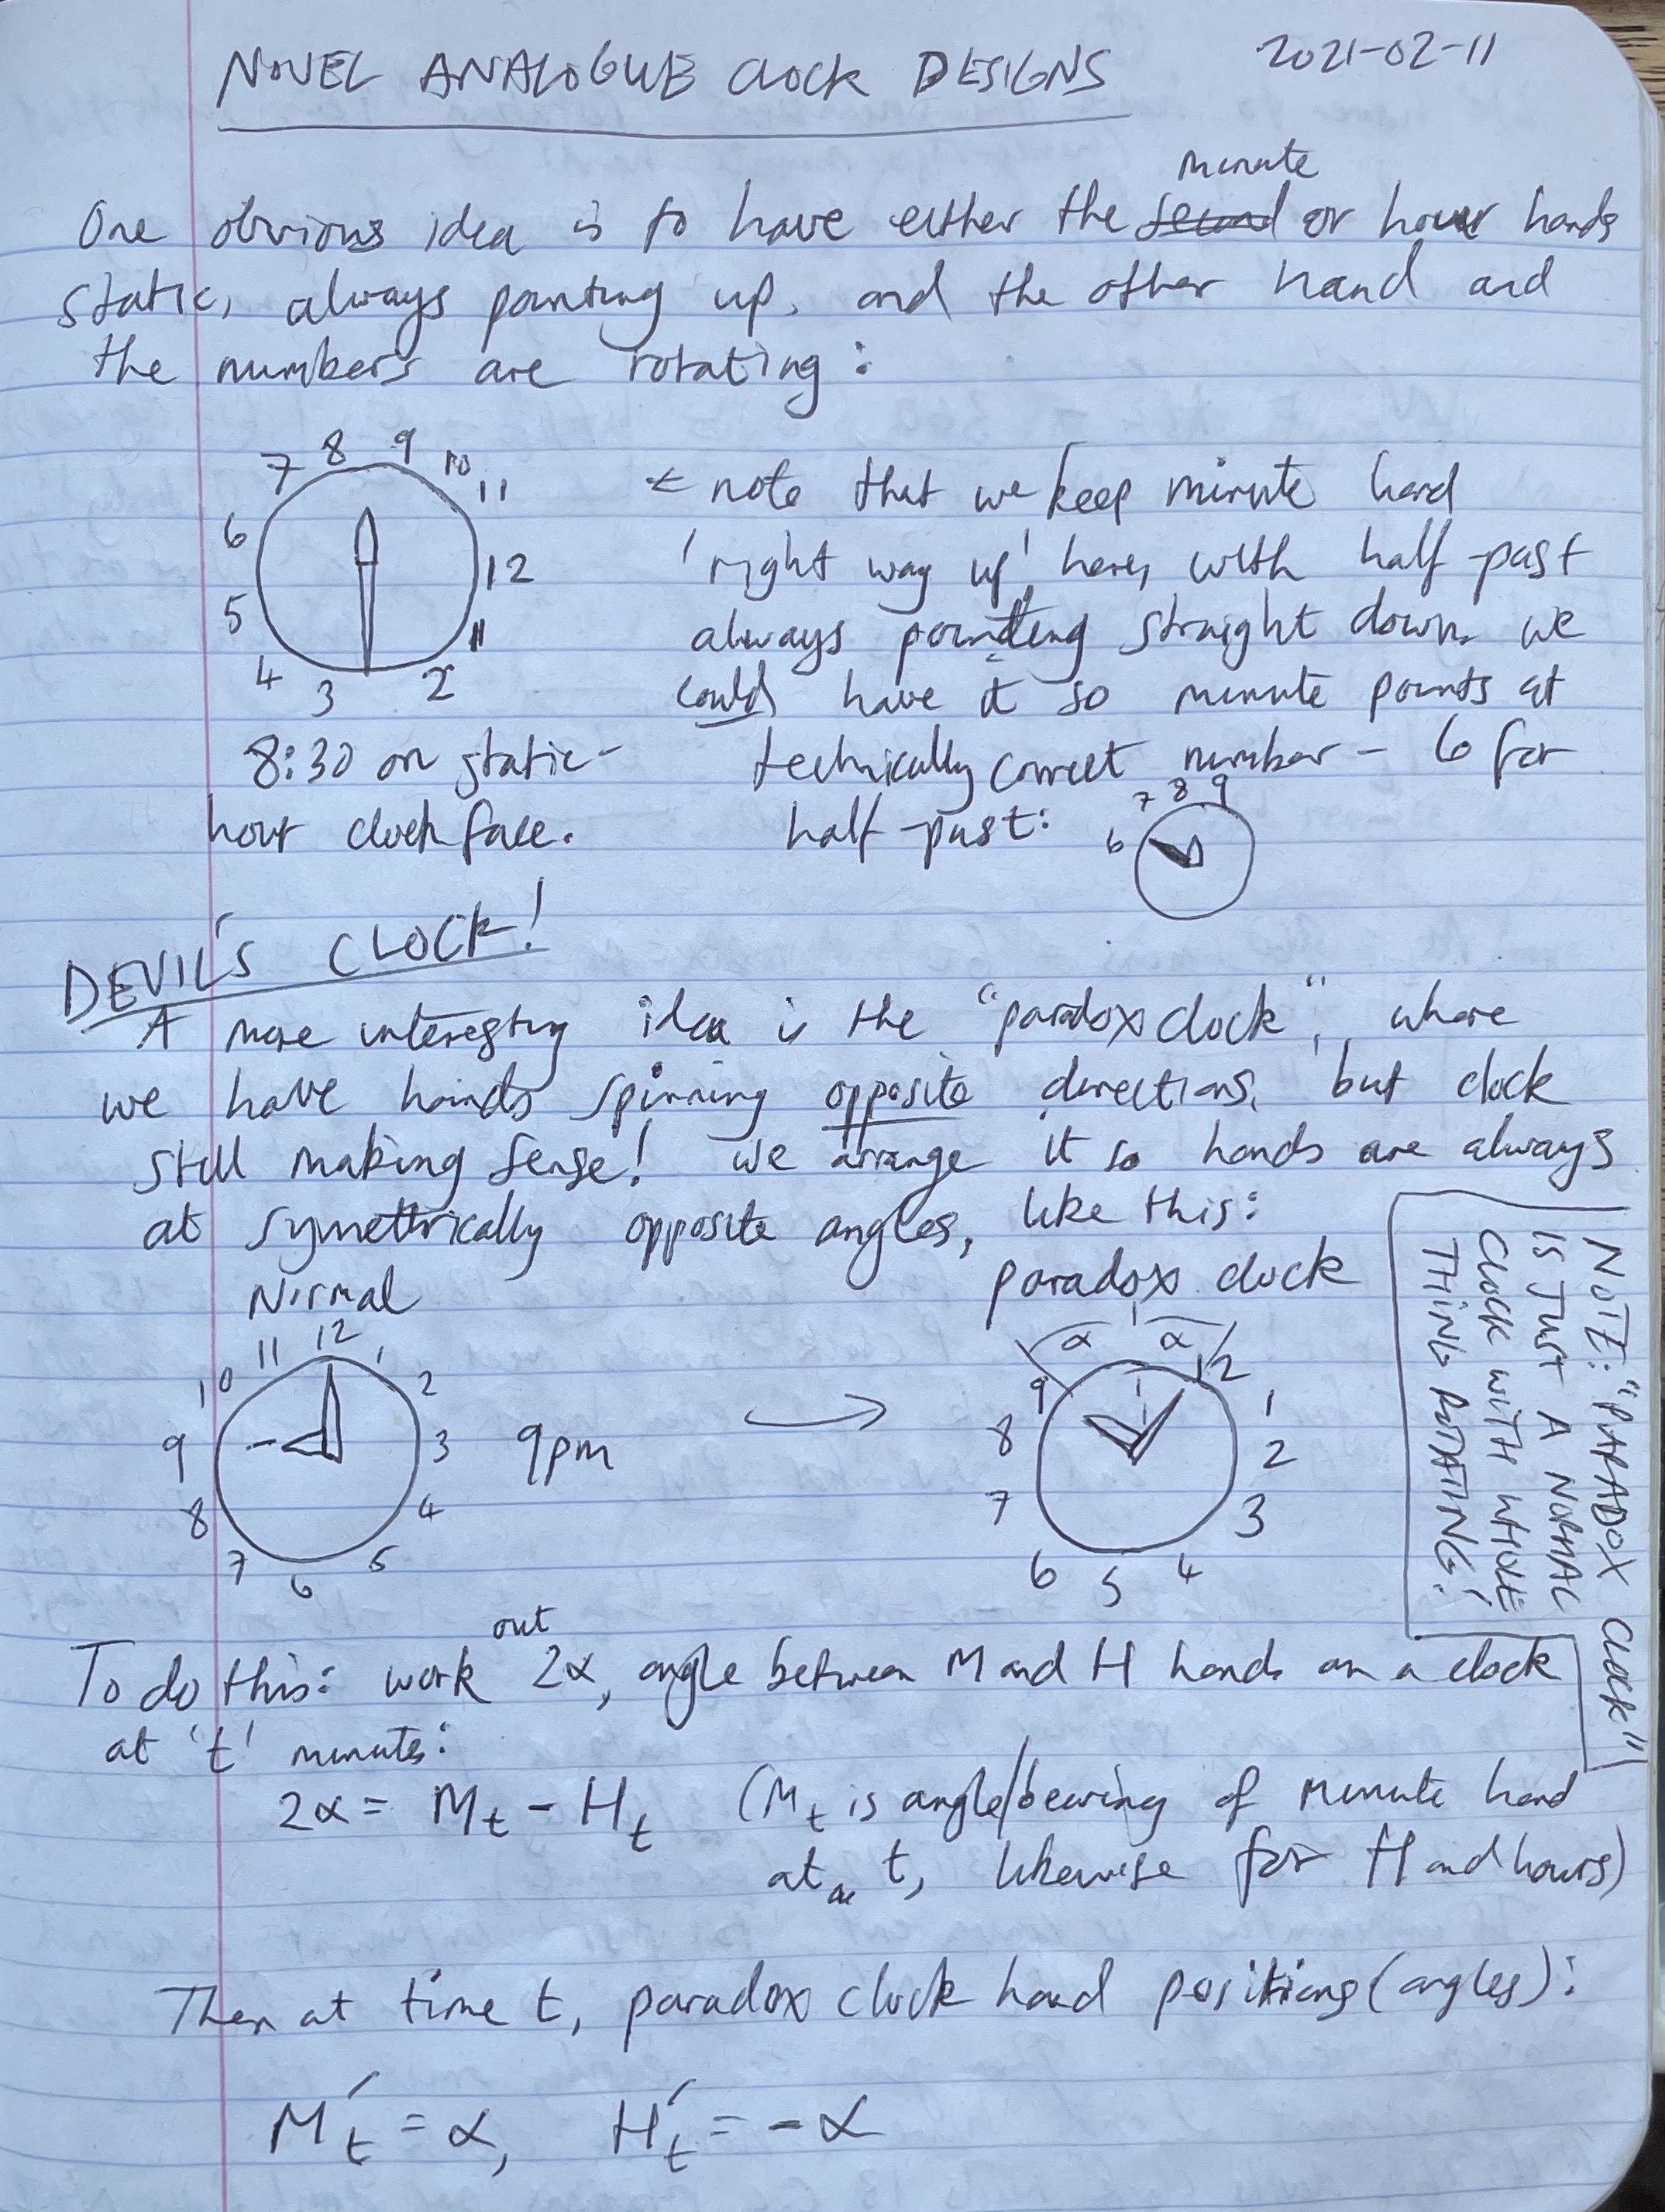 NOVEL ANALOGUE CLOCK DESIGNS
2021-02-11
minute
One obvious idea is to have either the second or hour hands
static, always pointing up, and the other hand and
the numbers are rotating:
7 8 9 10 11
6 12
5 11
4 3 2
8:30 on static-
hour clock face.
← note that we keep minute hand
'right way up' here, with half-past
always pointing straight down. We
could have it so minute points at
technically correct number - 6 for
half-past:
7 8 9
6
DEVIL'S CLOCK!
A more interesting idea is the "paradox clock", where
we have hands spinning opposite directions, but clock
still making sense! We arrange it so hands are always
at symettrically opposite angles, like this:
Normal
12
11 1
10 2
9 3
8 4
7 6 5
9pm
paradox clock
α α
9 12
8 1
2
7 3
6 5 4
NOTE: "PARADOX CLOCK"
IS JUST A NORMAL
CLOCK WITH WHOLE
THING ROTATING!
out
To do this: work 2α, angle between M and H hands on a clock
at 't' minutes:
2α = Mt - Ht (Mt is angle/bearing of minute hand
at t, likewise for H and hours)
Then at time t, paradox clock hand positions (angles):
M't = α, H't = -α